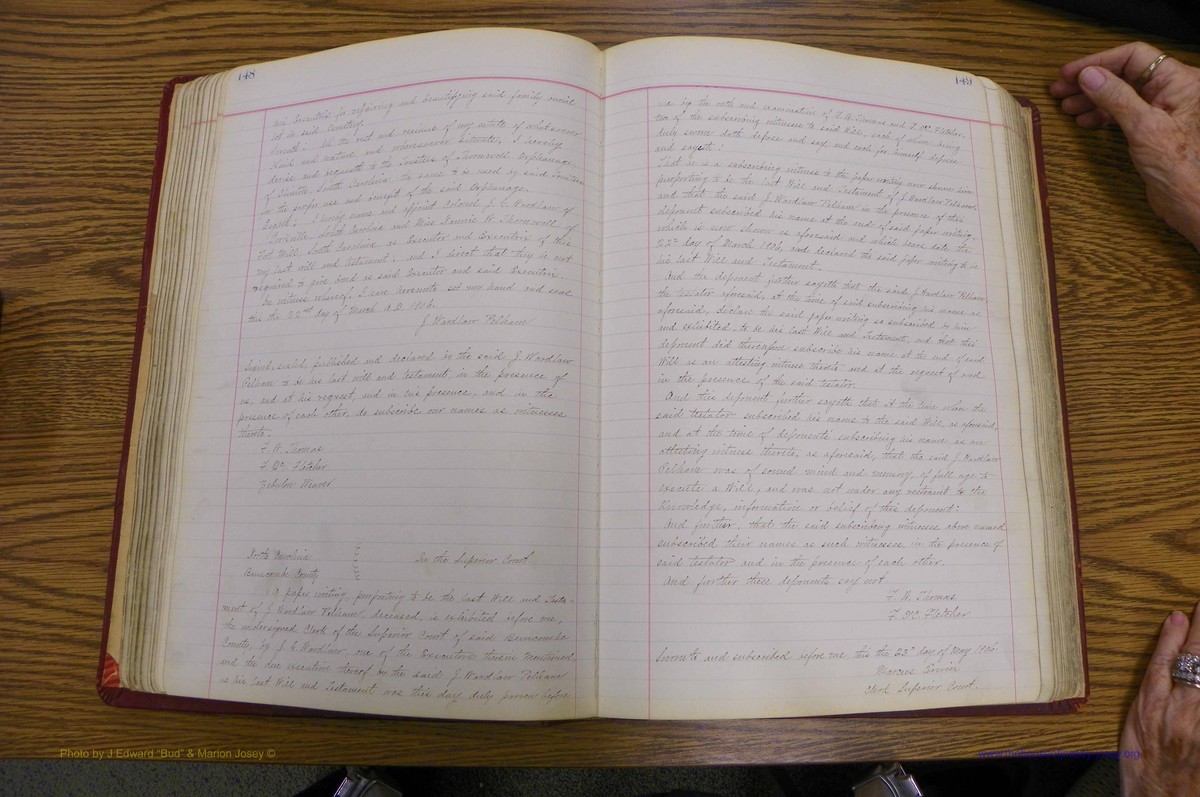 148
my Executrix for repairing and beautifying said family burial
lot in said Cemetery.
Seventh: All the rest and residue of my estate of whatsoever
kind and nature, and wheresoever situate, I hereby
devise and bequeath to the Trustees of Thornwell Orphanage,
of Clinton, South Carolina, the same to be used by said Trustees
in the proper use and benefit of the said Orphanage.
Eighth. I hereby name and appoint Colonel J. C. Wardlaw, of
South Carolina and Miss Nannie W. Thornwell of
Fort Mill, South Carolina, as Executor and Executrix of this
my last will and testament, and I direct that they be not
required to give bond as said Executor and said Executrix.
In witness whereof, I have hereunto set my hand and seal
this the 22nd day of March A.D. 1906.
J. Wardlaw Pelham
Signed, sealed, published and declared by the said J. Wardlaw
Pelham to be his last will and testament, in the presence of
us, and at his request, and in his presence, and in the
presence of each other, do subscribe our names as witnesses
thereto.
F. W. Thomas
F. McC. Fletcher
Zebulon Weaver
North Carolina
In the Superior Court
Buncombe County
A paper writing, purporting to be the last Will and Testa-
ment of J. Wardlaw Pelham, deceased, is exhibited before me,
the undersigned Clerk of the Superior Court of said Buncombe
County, by J. C. Wardlaw, one of the Executors therein mentioned,
and the due execution thereof by the said J. Wardlaw Pelham
as his last Will and Testament was this day duly proven before
149
me by the oath and examination of F. W. Thomas and F. McC. Fletcher,
two of the subscribing witnesses to said Will, each of whom being
duly sworn doth depose and say and each for himself depose
and sayeth:
That he is a subscribing witness to the paper writing now shown him
purporting to be the last Will and Testament of J. Wardlaw Pelham,
and that the said J. Wardlaw Pelham in the presence of this
deponent subscribed his name at the end of said paper writing,
which is now shown as aforesaid and which bears date the
22nd day of March 1906, and declared the said paper writing to be
his last Will and Testament.
And the deponent further sayeth that the said J. Wardlaw Pelham
the testator aforesaid, at the time of said subscribing his name as
aforesaid, declare the said paper writing so subscribed by him
and exhibited, to be his last Will and Testament, and that this
deponent did thereupon subscribe his name at the end of said
Will as an attesting witness thereto and at the request of and
in the presence of the said testator.
And this deponent further sayeth that at the time when the
said testator subscribed his name to the said Will, as aforesaid,
and at the time of deponents subscribing his name as an
attesting witness thereto, as aforesaid, that the said J. Wardlaw
Pelham was of sound mind and memory, of full age to
execute a Will, and was not under any restraint to the
knowledge, information or belief of this deponent:
And further, that the said subscribing witnesses above named
subscribed their names as such witnesses in the presence of
said testator and in the presence of each other.
And further these deponents say not
F. W. Thomas,
F. McC. Fletcher
Sworn to and subscribed before me, this the 23rd day of May 1906.
Marcus Erwin
Clerk Superior Court.
Photo by J Edward "Bud" & Marion Josey ©